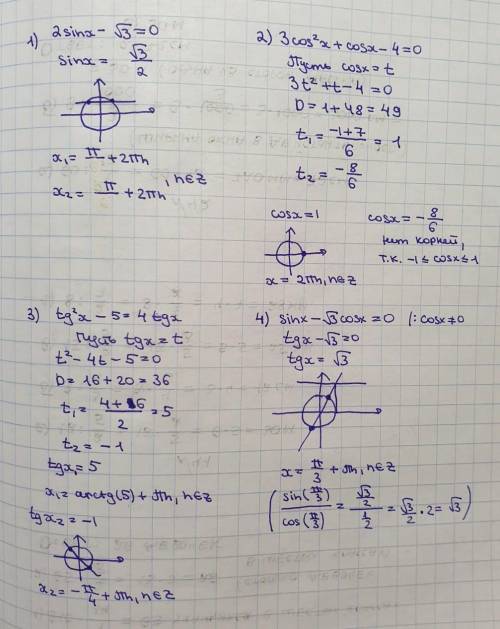 1) 2sinx - √3 = 0
sinx = √3/2
x₁ = π/ + 2πn
x₂ = π/ + 2πn, n∈Z
2) 3cos²x + cosx - 4 = 0
Пусть cosx = t
3t² + t - 4 = 0
D = 1 + 48 = 49
t₁ = (-1+7)/6 = 1
t₂ = -8/6
cosx = 1
x = 2πn, n∈Z
cosx = -8/6
нет корней,
т.к. -1 ≤ cosx ≤ 1
3) tg²x - 5 = 4tgx
Пусть tgx = t
t² - 4t - 5 = 0
D = 16 + 20 = 36
t₁ = (4+6)/2 = 5
t₂ = -1
tgx₁ = 5
x₁ = arctg(5) + πn, n∈Z
tgx₂ = -1
x₂ = -π/4 + πn, n∈Z
4) sinx - √3cosx = 0 |: cosx ≠ 0
tgx - √3 = 0
tgx = √3
x = π/3 + πn, n∈Z
(sin(π/3)/cos(π/3) = (√3/2)/(1/2) = √3/2 · 2 = √3)